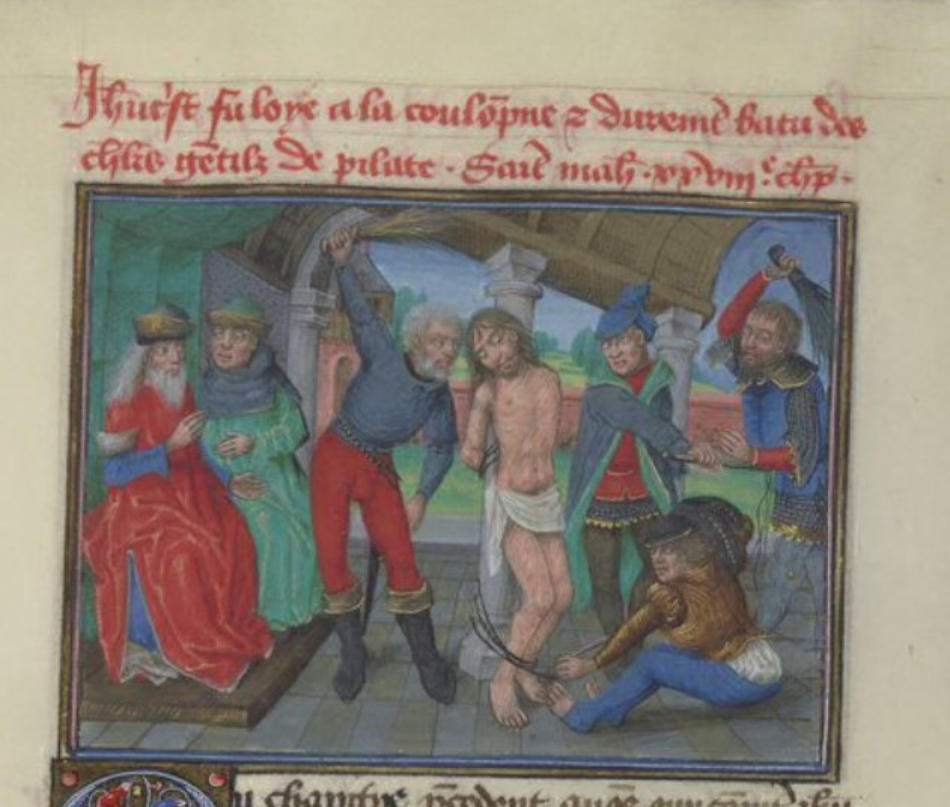 Jhūcst fu loye a la coulōpne ⁊ duremēt batu des
chl̄rs gētilz de pilate . Saīt mah̄ . xxviii.e chp̄ .
u chapitre p̄cedent auōs